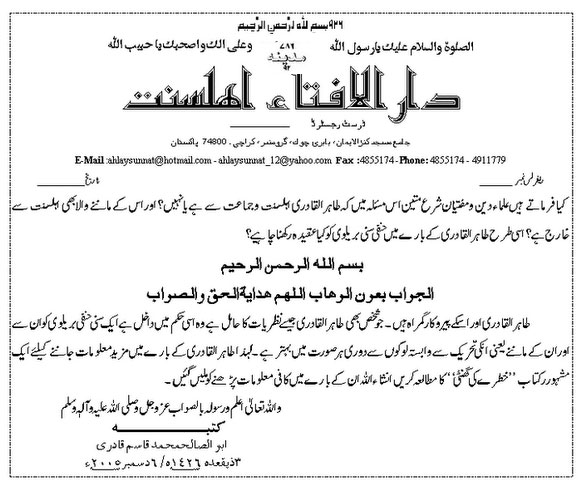 ۹۲۶ بسم اللہ الرحمن الرحیم
الصلوۃ والسلام علیک یارسول اللہ ۷۸۶ وعلی الک واصحبک یا حبیب اللہ
مدینہ
۹۲
دار الافتاء اھلسنت
ٹرسٹ رجسٹرڈ
جامع مسجد کنزالایمان، بابری چوک، گرومندر، کراچی۔ 74800 پاکستان
E-Mail :ahlaysunnat@hotmail.com - ahlaysunnat_12@yahoo.com Fax :4855174 - Phone: 4855174 - 4911779
ریفرنس نمبر ______ تاریخ ______
کیا فرماتے ہیں علماء دین ومفتیان شرع متین اس مسئلہ میں کہ طاہر القادری اہلسنت وجماعت سے ہے یا نہیں؟ اور اس کے ماننے والا بھی اہلسنت سے
خارج ہے؟ اسی طرح طاہر القادری کے بارے میں حنفی سنی بریلوی کو کیا عقیدہ رکھنا چاہیے؟
بسم الله الرحمن الرحیم
الجواب بعون الوهاب اللهم هداية الحق والصواب
طاہر القادری اور اسکے پیروکار گمراہ ہیں۔ جو شخص بھی طاہر القادری جیسے نظریات کا حامل ہے وہ اسی حکم میں داخل ہے ایک سنی حنفی بریلوی کو ان سے
اور ان کے ماننے یعنی انکی تحریک سے وابستہ لوگوں سے دوری ہر صورت میں بہتر ہے۔ لہذا طاہر القادری کے بارے میں مزید معلومات جاننے کیلئے ایک
مشہور کتاب ''خطرے کی گھنٹی'' کا مطالعہ کریں انشاء اللہ ان کے بارے میں کافی معلومات پڑھنے کو ملیں گئیں۔
واللہ تعالیٰ اعلم ورسولہ بالصواب عزوجل وصلی اللہ علیہ وآلہ وسلم
کتبــــــــہ
ابو الصالح محمد قاسم قادری
۳ ذیقعدہ ۱۴۲۶ھ / ۶ دسمبر ۲۰۰۵ء